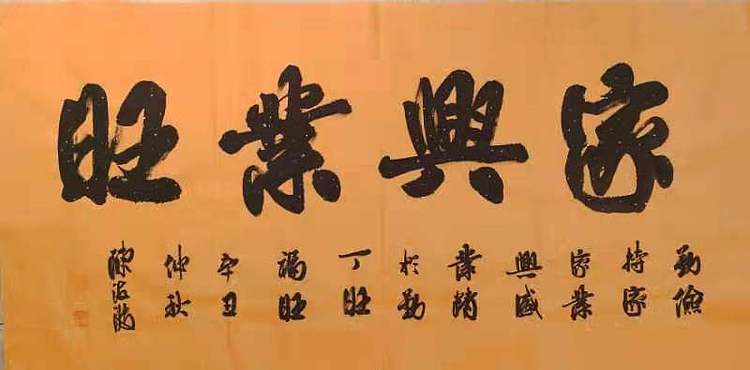 家興業旺
勤儉
持家
家業
興盛
業精
於勤
丁旺
福旺
辛丑
仲秋
陳